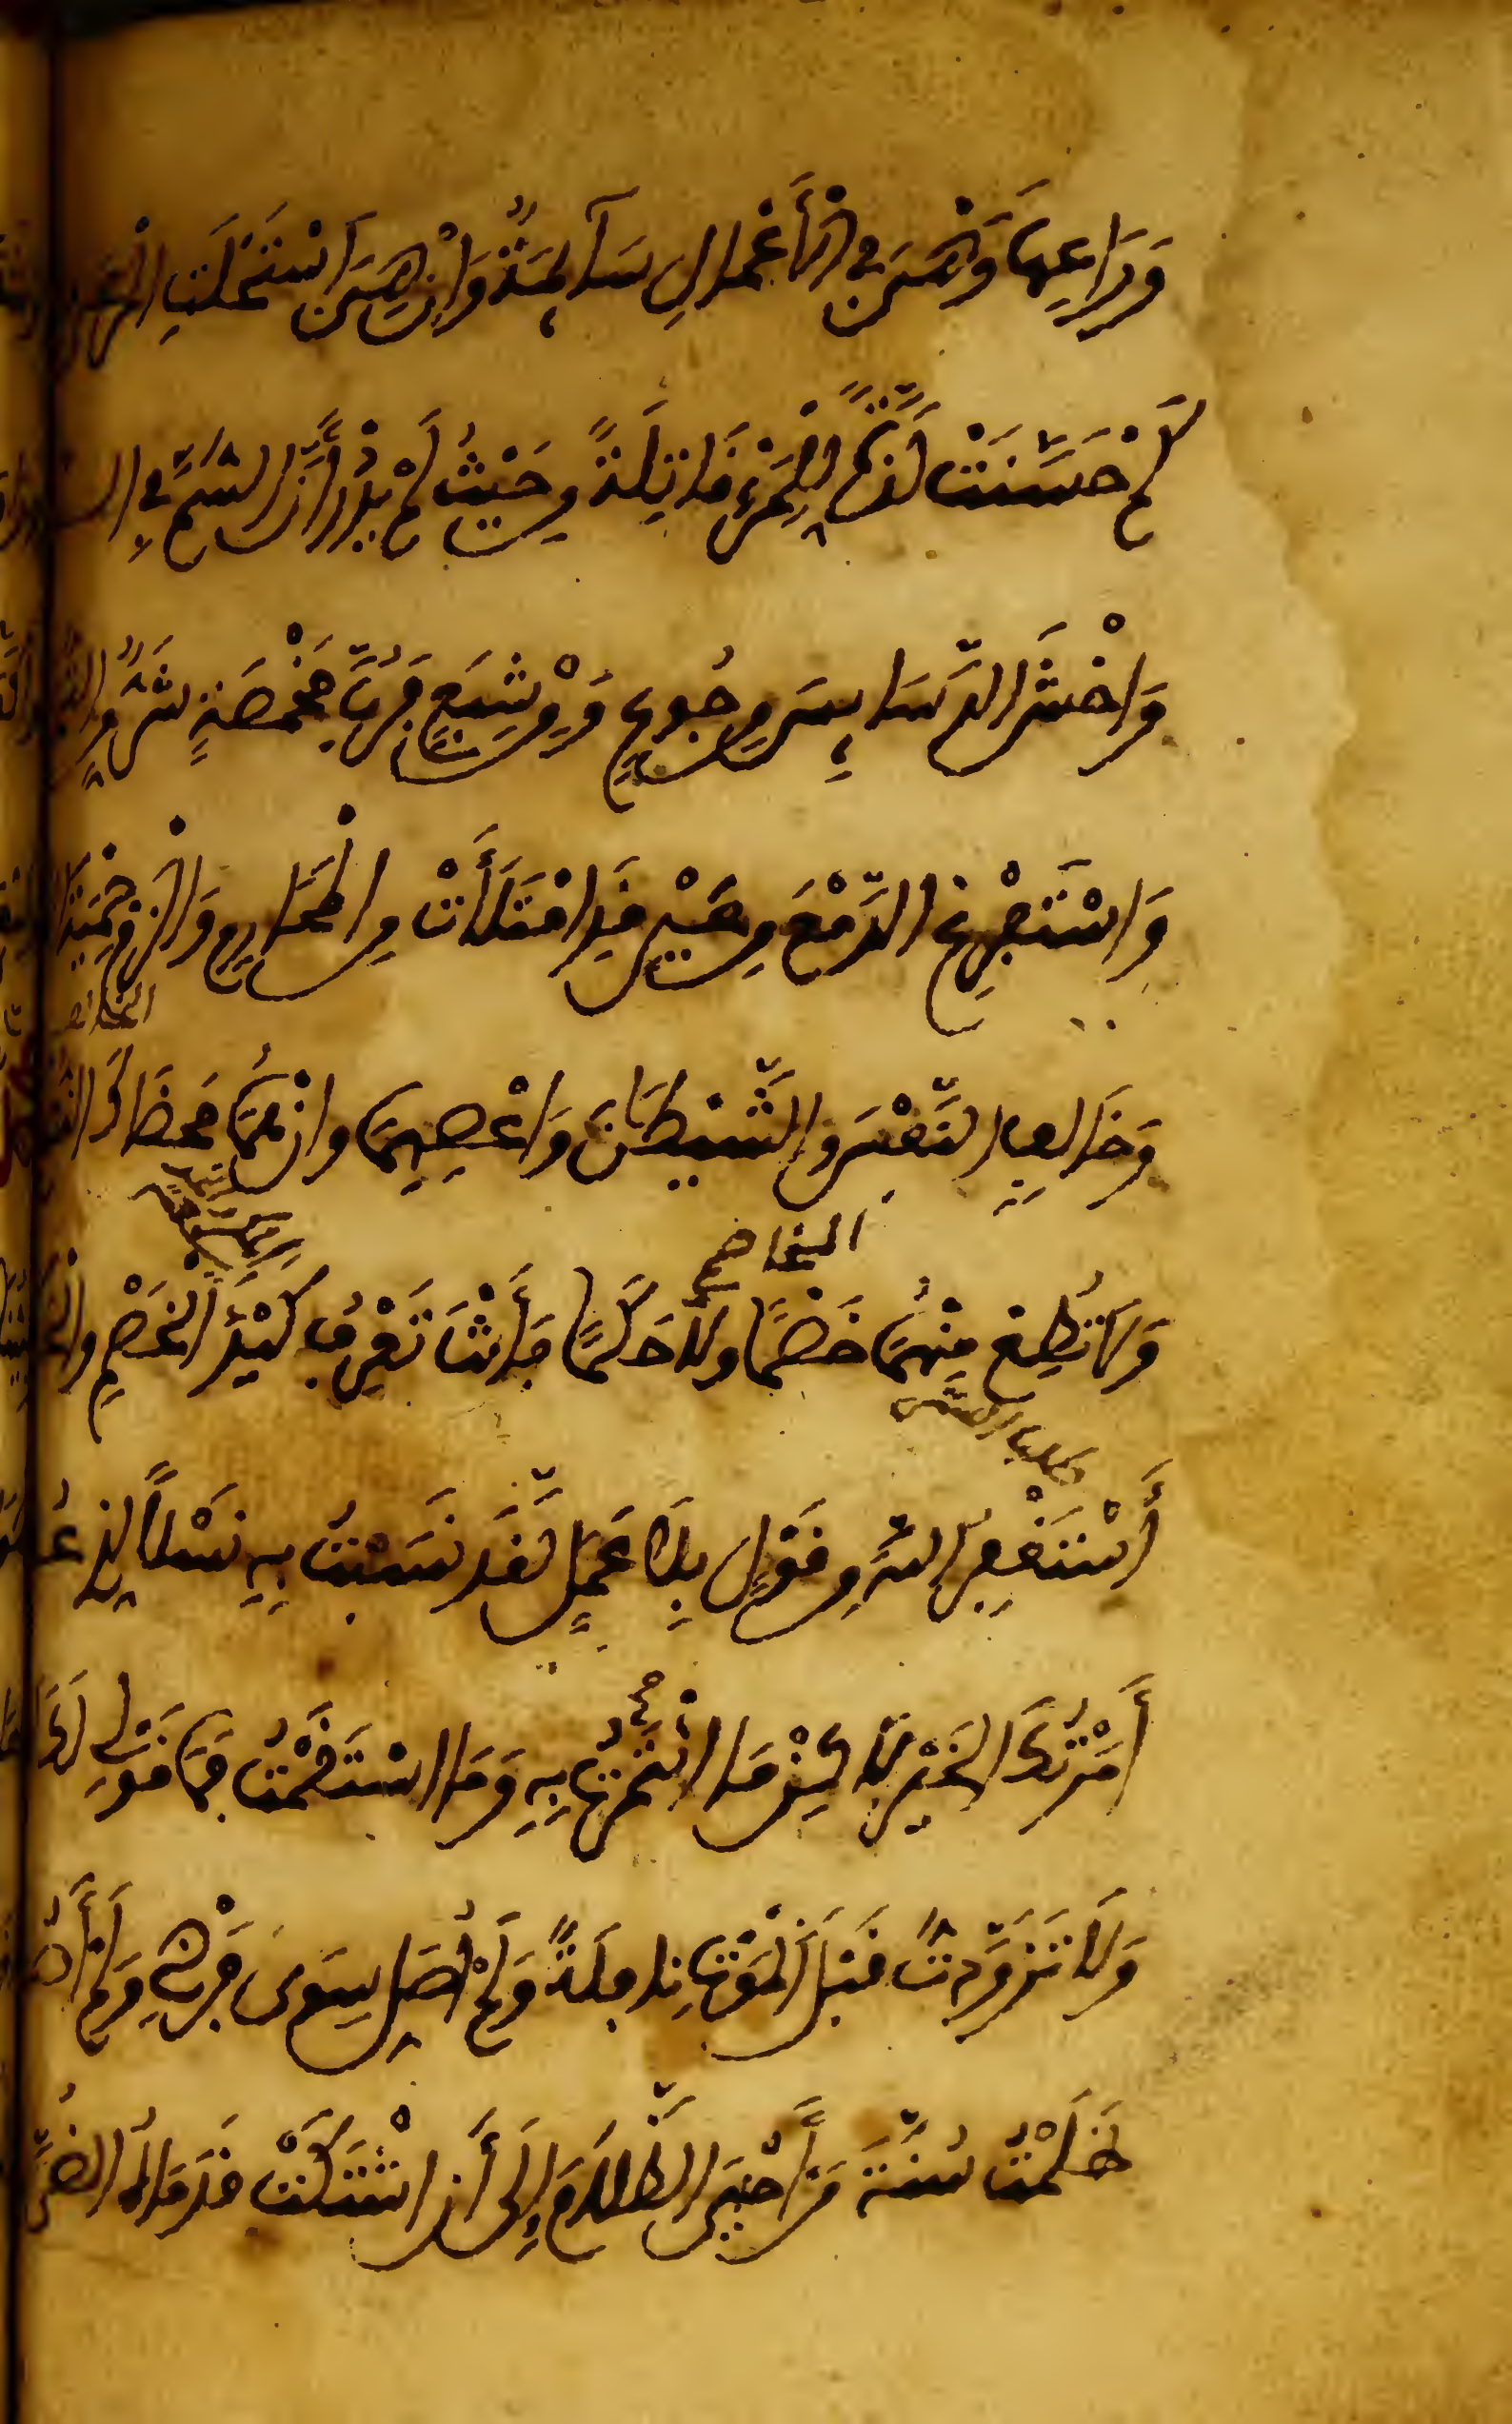 وَرَاعِهَا وَهْيَ فِي الْأَعْمَالِ سَآئِمَةٌ وَإِنْ هِيَ اسْتَحْلَتِ الْمَرْ
كَمْ حَسَّنَتْ لَذَّةً لِلْمَرْءِ قَاتِلَةً مِنْ حَيْثُ لَمْ يَدْرِ أَنَّ السُّمَّ فِي ال
وَاخْشَ الدَّسَائِسَ مِنْ جُوعٍ وَمِنْ شِبَعٍ فَرُبَّ مَخْمَصَةٍ شَرٌّ مِنَ
وَاسْتَفْرِغِ الدَّمْعَ مِنْ عَيْنٍ قَدِ امْتَلَأَتْ مِنَ الْمَحَارِمِ وَالْزَمْ حِمْيَةَ
وَخَالِفِ النَّفْسَ وَالشَّيْطَانَ وَاعْصِهِمَا وَإِنْ هُمَا مَحَضَاكَ
وَلَا تُطِعْ مِنْهُمَا خَصْمًا وَلَا حَكَمًا فَأَنْتَ تَعْرِفُ كَيْدَ الْخَصْمِ وَ
أَسْتَغْفِرُ اللَّهَ مِنْ قَوْلٍ بِلَا عَمَلٍ لَقَدْ نَسَبْتُ بِهِ نَسْلًا لِذِي عُ
أَمَرْتُكَ الْخَيْرَ لَكِنْ مَا ائْتَمَرْتُ بِهِ وَمَا اسْتَقَمْتُ فَمَا قَوْلِي لَكَ
وَلَا تَزَوَّدْتُ قَبْلَ الْمَوْتِ نَافِلَةً وَلَمْ أُصَلِّ سِوَى فَرْضٍ وَلَمْ أَ
ظَلَمْتُ سُنَّةَ مَنْ أَحْيَى الظَّلَامَ إِلَى أَنِ اشْتَكَتْ قَدَمَاهُ الضُّرَّ